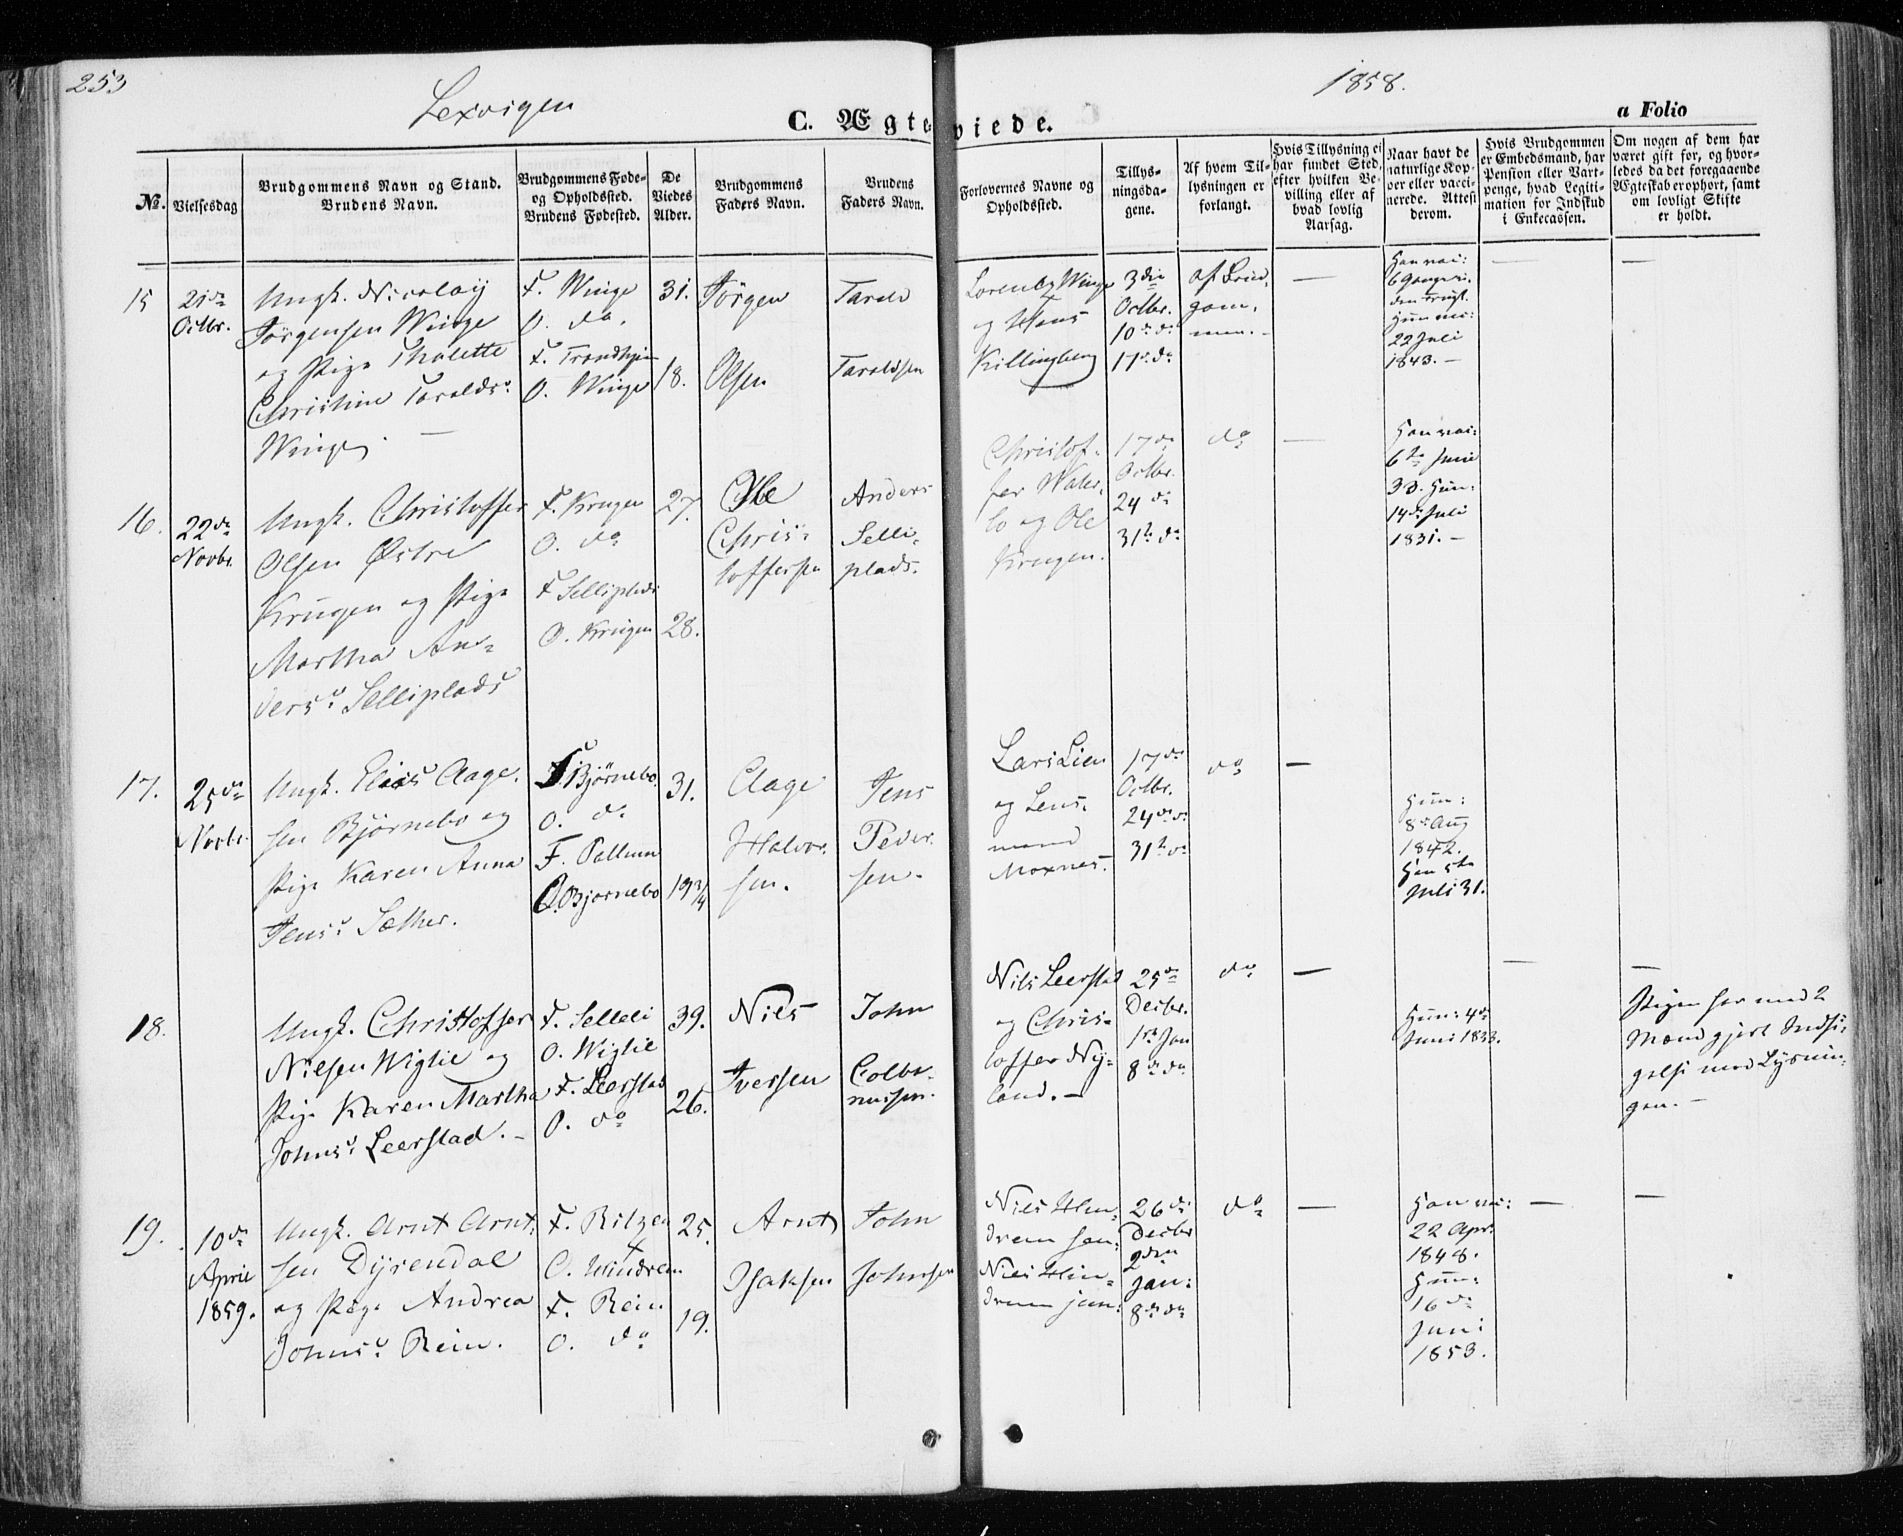 253
Lexvigen
1858.
C. Ægteviede.
a Folio
No.
Vielsesdag
Brudgommens Navn og Stand.
Brudens Navn.
Brudgommens Føde-
og Opholdssted.
Brudens Fødested.
De
Viedes
Alder.
Brudgommens
Faders Navn.
Brudens
Faders Navn.
Forlovernes Navne og
Opholdssted.
Tillys-
ningsda-
gene.
Af hvem Til-
lysningen er
forlangt.
Hvis Tillysning ei
har fundet Sted,
efter hvilken Be-
villing eller af
hvad lovlig
Aarsag.
Naar havt de
naturlige Kop-
per eller vacci-
nerede. Attest
derom.
Hvis Brudgommen
er Embedsmand, har
Pension eller Vart-
penge, hvad Legiti-
mation for Indskud
i Enkecassen.
Om nogen af dem har
været gift før, og hvor-
ledes da det foregaaende
Ægteskab er ophørt, samt
om lovligt Skifte
er holdt.
15
21de
Octbr.
Ungk. Nicolay
Jörgensen Winge
og Pige Thalette
Christine Taralds
Winge.
F. Winge
O. do.
F. Trondhjem
O. Winge
31.
18.
Jörgen
Olsen
Tarald
Taraldsen
Lorents Winge
og Hans
Killingberg
3die
Octbr.
10de do
17de do
af Brud-
gom-
men.
Han vac:
Hun vac:
22 Juli
1843.
16.
22de
Novbr.
Ungk. Christoffer
Olsen Østre
Krugen og Pige
Martha An-
ders: Selliplads
F. Krugen
O. do
F. Selliplads
O. Krugen
27.
28.
Ole
Chris-
toffersen
Anders
Selli-
plads.
Christof-
fer
og Ole
Krugen.
17de
Octbr.
24de
31te do
do
Han vac:
6te Juni
33. Hun:
14de Juli
1831.
17.
25de
Novbr.
Ungk. Elias Aage-
sen Björnebo og
Pige Karen Anna
Jens: Sæther.
F. Björnebo
O. do
F.
O. Bjornebo
31.
19 3/4
Aage
Halvor-
sen.
Jens
Peder-
sen.
Lars Lien
og Lens-
mand
Moxnes.
17de
Octbr.
24de do
31te do
do
Hun:
8de Aug
1842.
Han 5te
Juli 31.
18.
Ungk. Christoffer
Nielsen Wiglie og
Pige Karen Martha
Johns: Leerstad.
F. Selleli
O. Wiglie
F. Leerstad
O. do
39.
26.
Niels
Iversen
John
Colbe-
nussen.
Nils Leerstad
og Chris-
toffer Ny-
land.
25de
Decbr.
1ste Jan
8de do
do
Hun: 4de
Juni 1833.
Pigen har med 2
Mænd gjort Indsi-
gelse mod Lysnin-
gen.
19.
10de
April
1859.
Ungk. Arnt Arnt-
sen Dyrendal
og Pige Andrea
Johns: Rein.
F. Ritzen
O. Hindrem
F. Rein
O. do
25.
19.
Arnt
Isaksen
John
Johnsen
Niels Hin-
drem sen:
Niels Hin-
drem jun:
26de
Decbr
2den
Jan:
8de do
do
Han vac:
22 Apr:
1848.
Hun:
16de
Juni
1853.